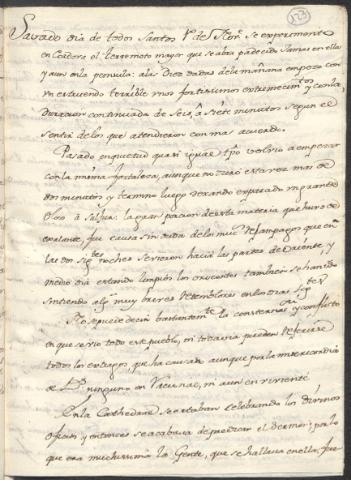 123
Savado dia de todos Santos 1º de Nov.re se experimento
en Cadiz el terremoto mayor que se abra padecido Jamas en ella
y aun en la peninsula: a las Diez dadas de la mañana empezo con
un estruendo terrible unos fortisimos estremecim.tos y con la
Duracion continuada de Seis, â siete minutos segun el
sentir de los que atendieron con mas acuerdo.
Pasado en quietud quasi igual tpo volvio a empezar
con la misma fortaleza, aunque no duro esta vez mas de
dos minutos y termino luego dexando esparcido un grande
Olor â Salfur: la gran porcion de esta materia que huvo de
exalarse, fue causa sin duda de los muchos relampagos que en
las dos sig.tes noches se vieron hacia las partes de Oriente, y
medio dia estando limpios los orizontes tambien se han ido
sintiendo alg.s muy breves temblores en los dias sig.tes
No se puede decir bastantem.te la consternac.on y conflicto
en que se vio todo este pueblo, ni todavia pueden referirse
todos los estragos que ha causado aunque por la misericordia
de D.s ninguno en Vacunas, ni aun en viviente
En la Cathedral se estaban celebrando los divinos
oficios y entonces se acababa de predicar el Sermon; por lo
que era muchissima la Gente, que se hallava en ella; fue